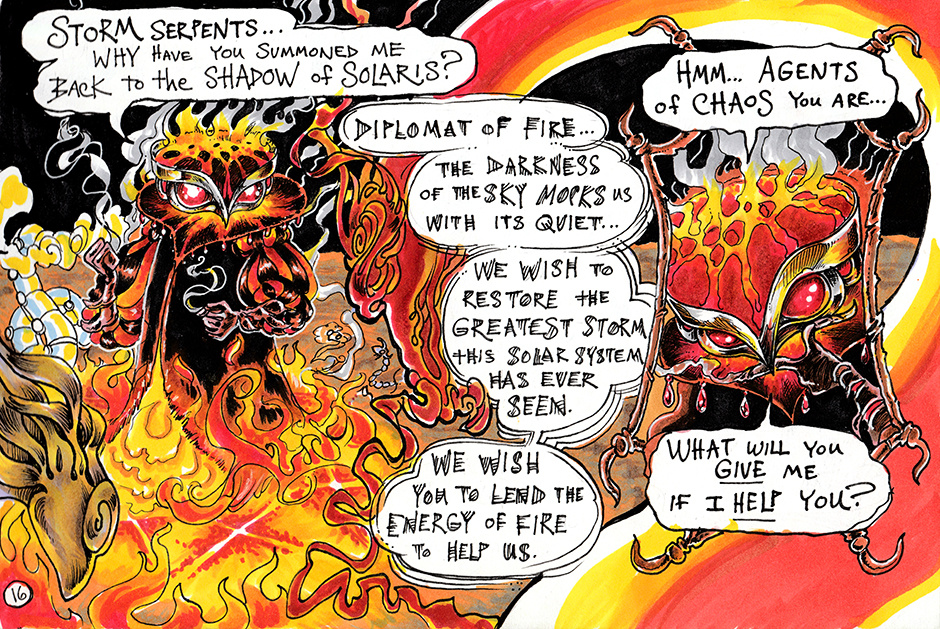 STORM SERPENTS...
WHY HAVE YOU SUMMONED ME
BACK to the SHADOW of SOLARIS?
DIPLOMAT OF FIRE...
THE DARKNESS
OF THE SKY MOCKS US
WITH ITS QUIET...
WE WISH TO
RESTORE THE
GREATEST STORM
THIS SOLAR SYSTEM
HAS EVER
SEEN.
WE WISH
YOU TO LEND THE
ENERGY OF FIRE
TO HELP US.
HMM... AGENTS
of CHAOS YOU ARE...
WHAT WILL YOU
GIVE ME
IF I HELP YOU?
16